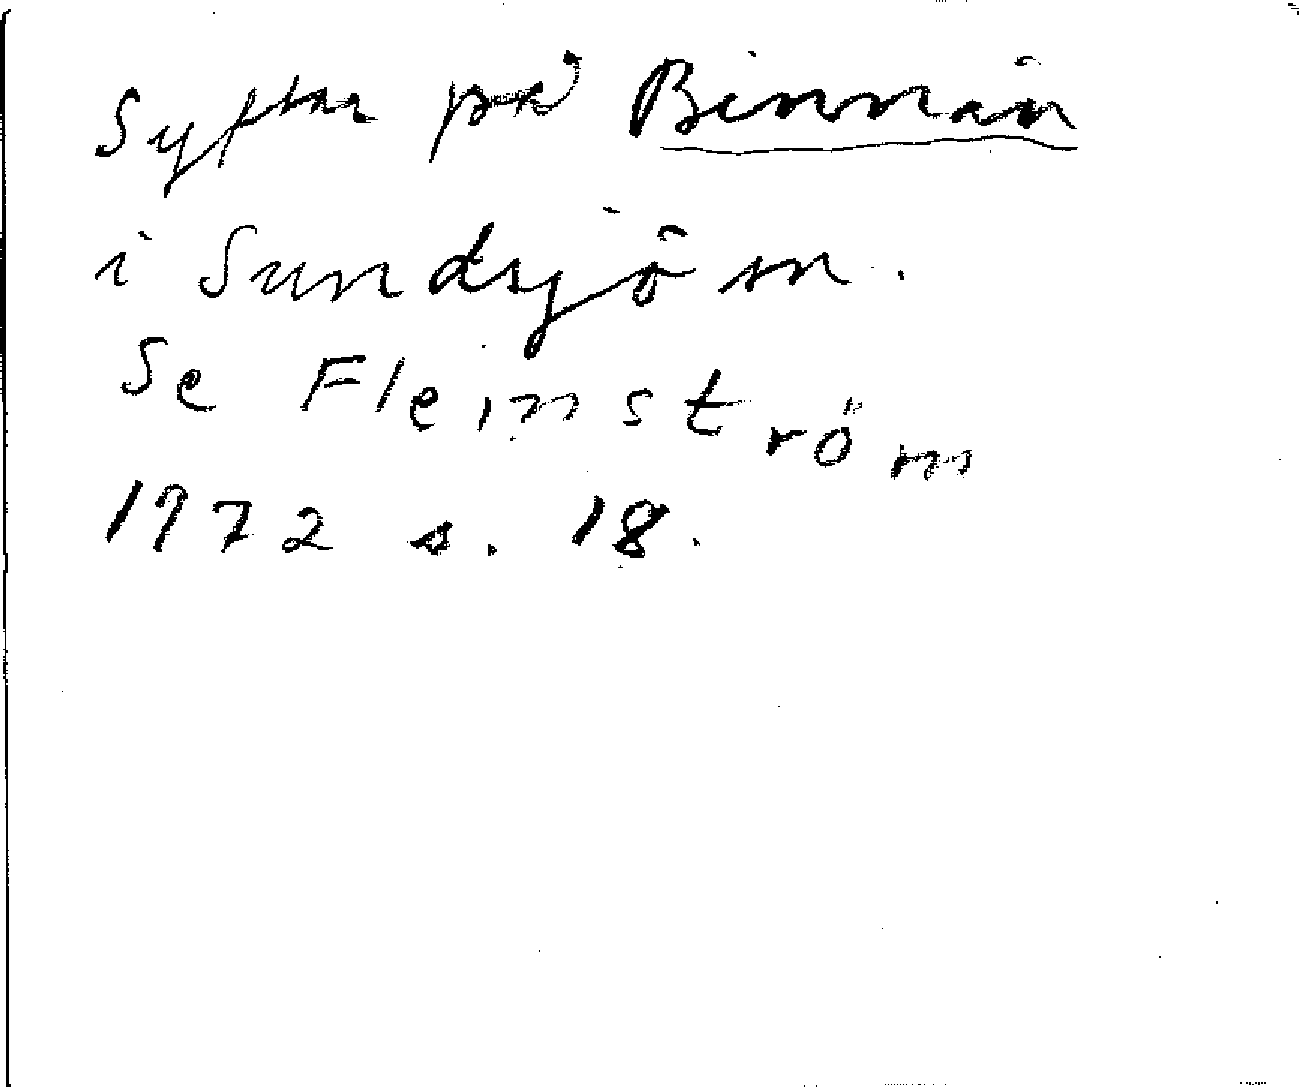 Syftar på Binnån
i Sundsjö sn.
Se Flemström
1972 s. 18.